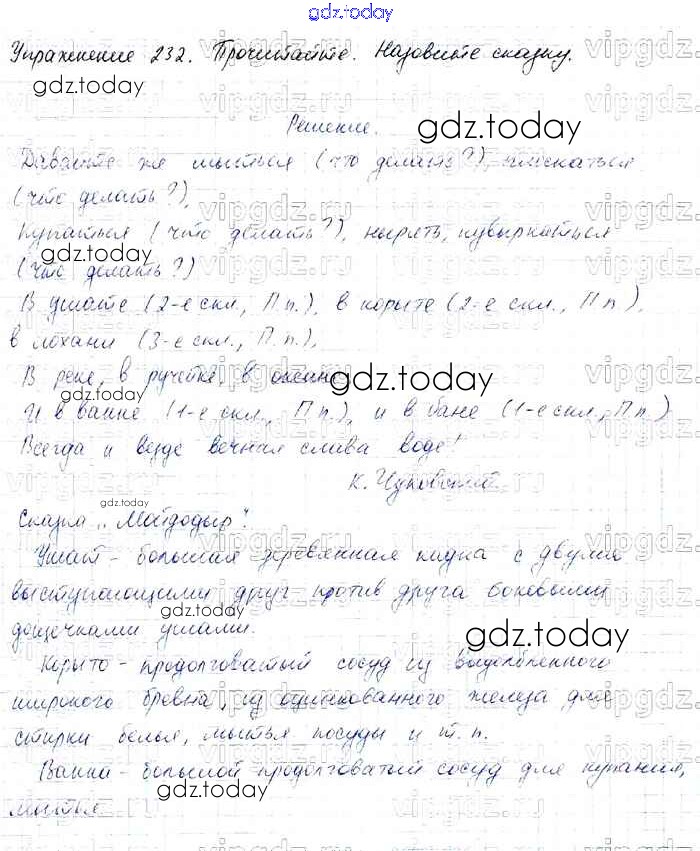 gdz.today
Упражнение 232. Прочитайте. Назовите сказку.
Решение.
Давайте же мыться (что делать?), плескаться
(что делать?),
Купаться (что делать?), нырять, кувыркаться
(что делать?)
В ушате (2-е скл., П.п.), в корыте (2-е скл., П.п.),
в лохани (3-е скл., П.п.),
В реке, в ручейке, в океане
И в ванне (1-е скл., П.п.), и в бане (1-е скл., П.п.)
Всегда и везде вечная слава воде!
К. Чуковский
Сказка „Мойдодыр".
Ушат - большая деревянная кадка с двумя
выступающими друг против друга боковыми
дощечками ушами.
Корыто - продолговатый сосуд из выдолбленного
широкого бревна, из оцинкованного железа для
стирки белья, мытья посуды и т.п.
Ванна - большой продолговатый сосуд для купания,
мытья